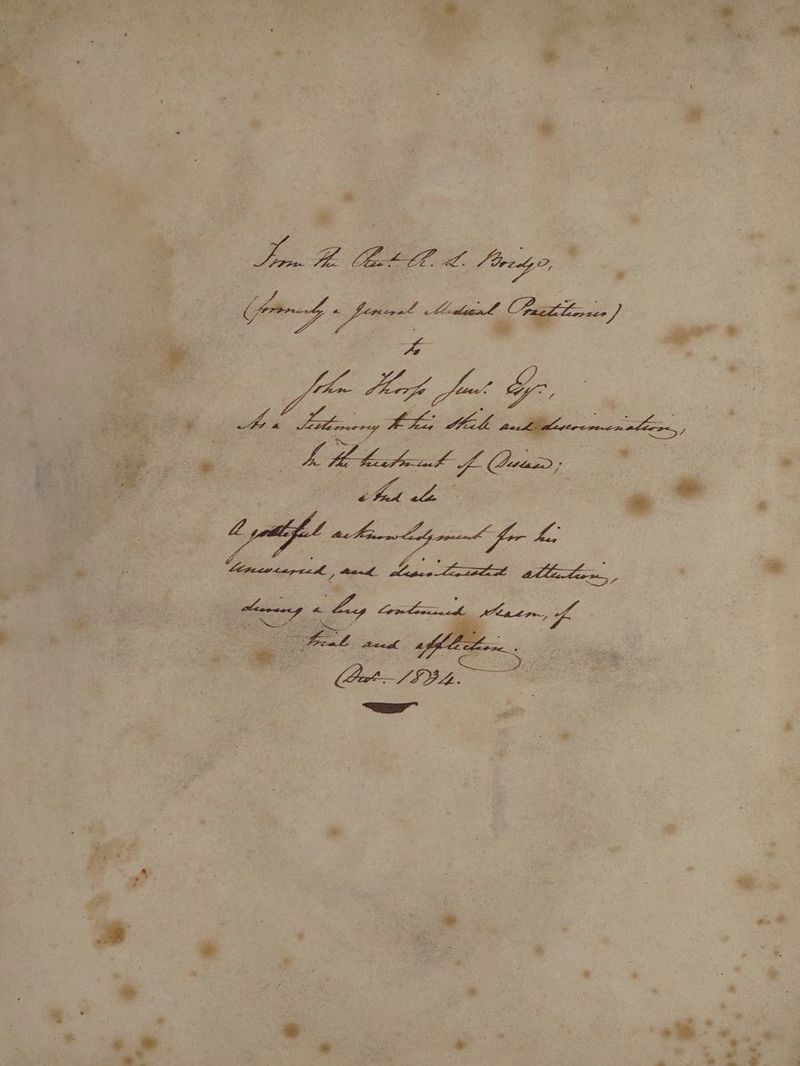 From the Revd. R. S. Bridge,
(formerly a General Medical Practitioner)
to
John Thorp Junr. Esqr.,
As a Testimony to his Skill and discrimination,
In the treatment of Disease;
And also
A grateful acknowledgment for his
Unwearied, and disinterested attention,
during a long continued Season, of
trial and affliction.
1834.